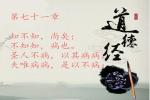 第七十一章
知不知，尚矣；
不知知，病也。
圣人不病，以其病病
夫唯病病，是以不病。
道德经